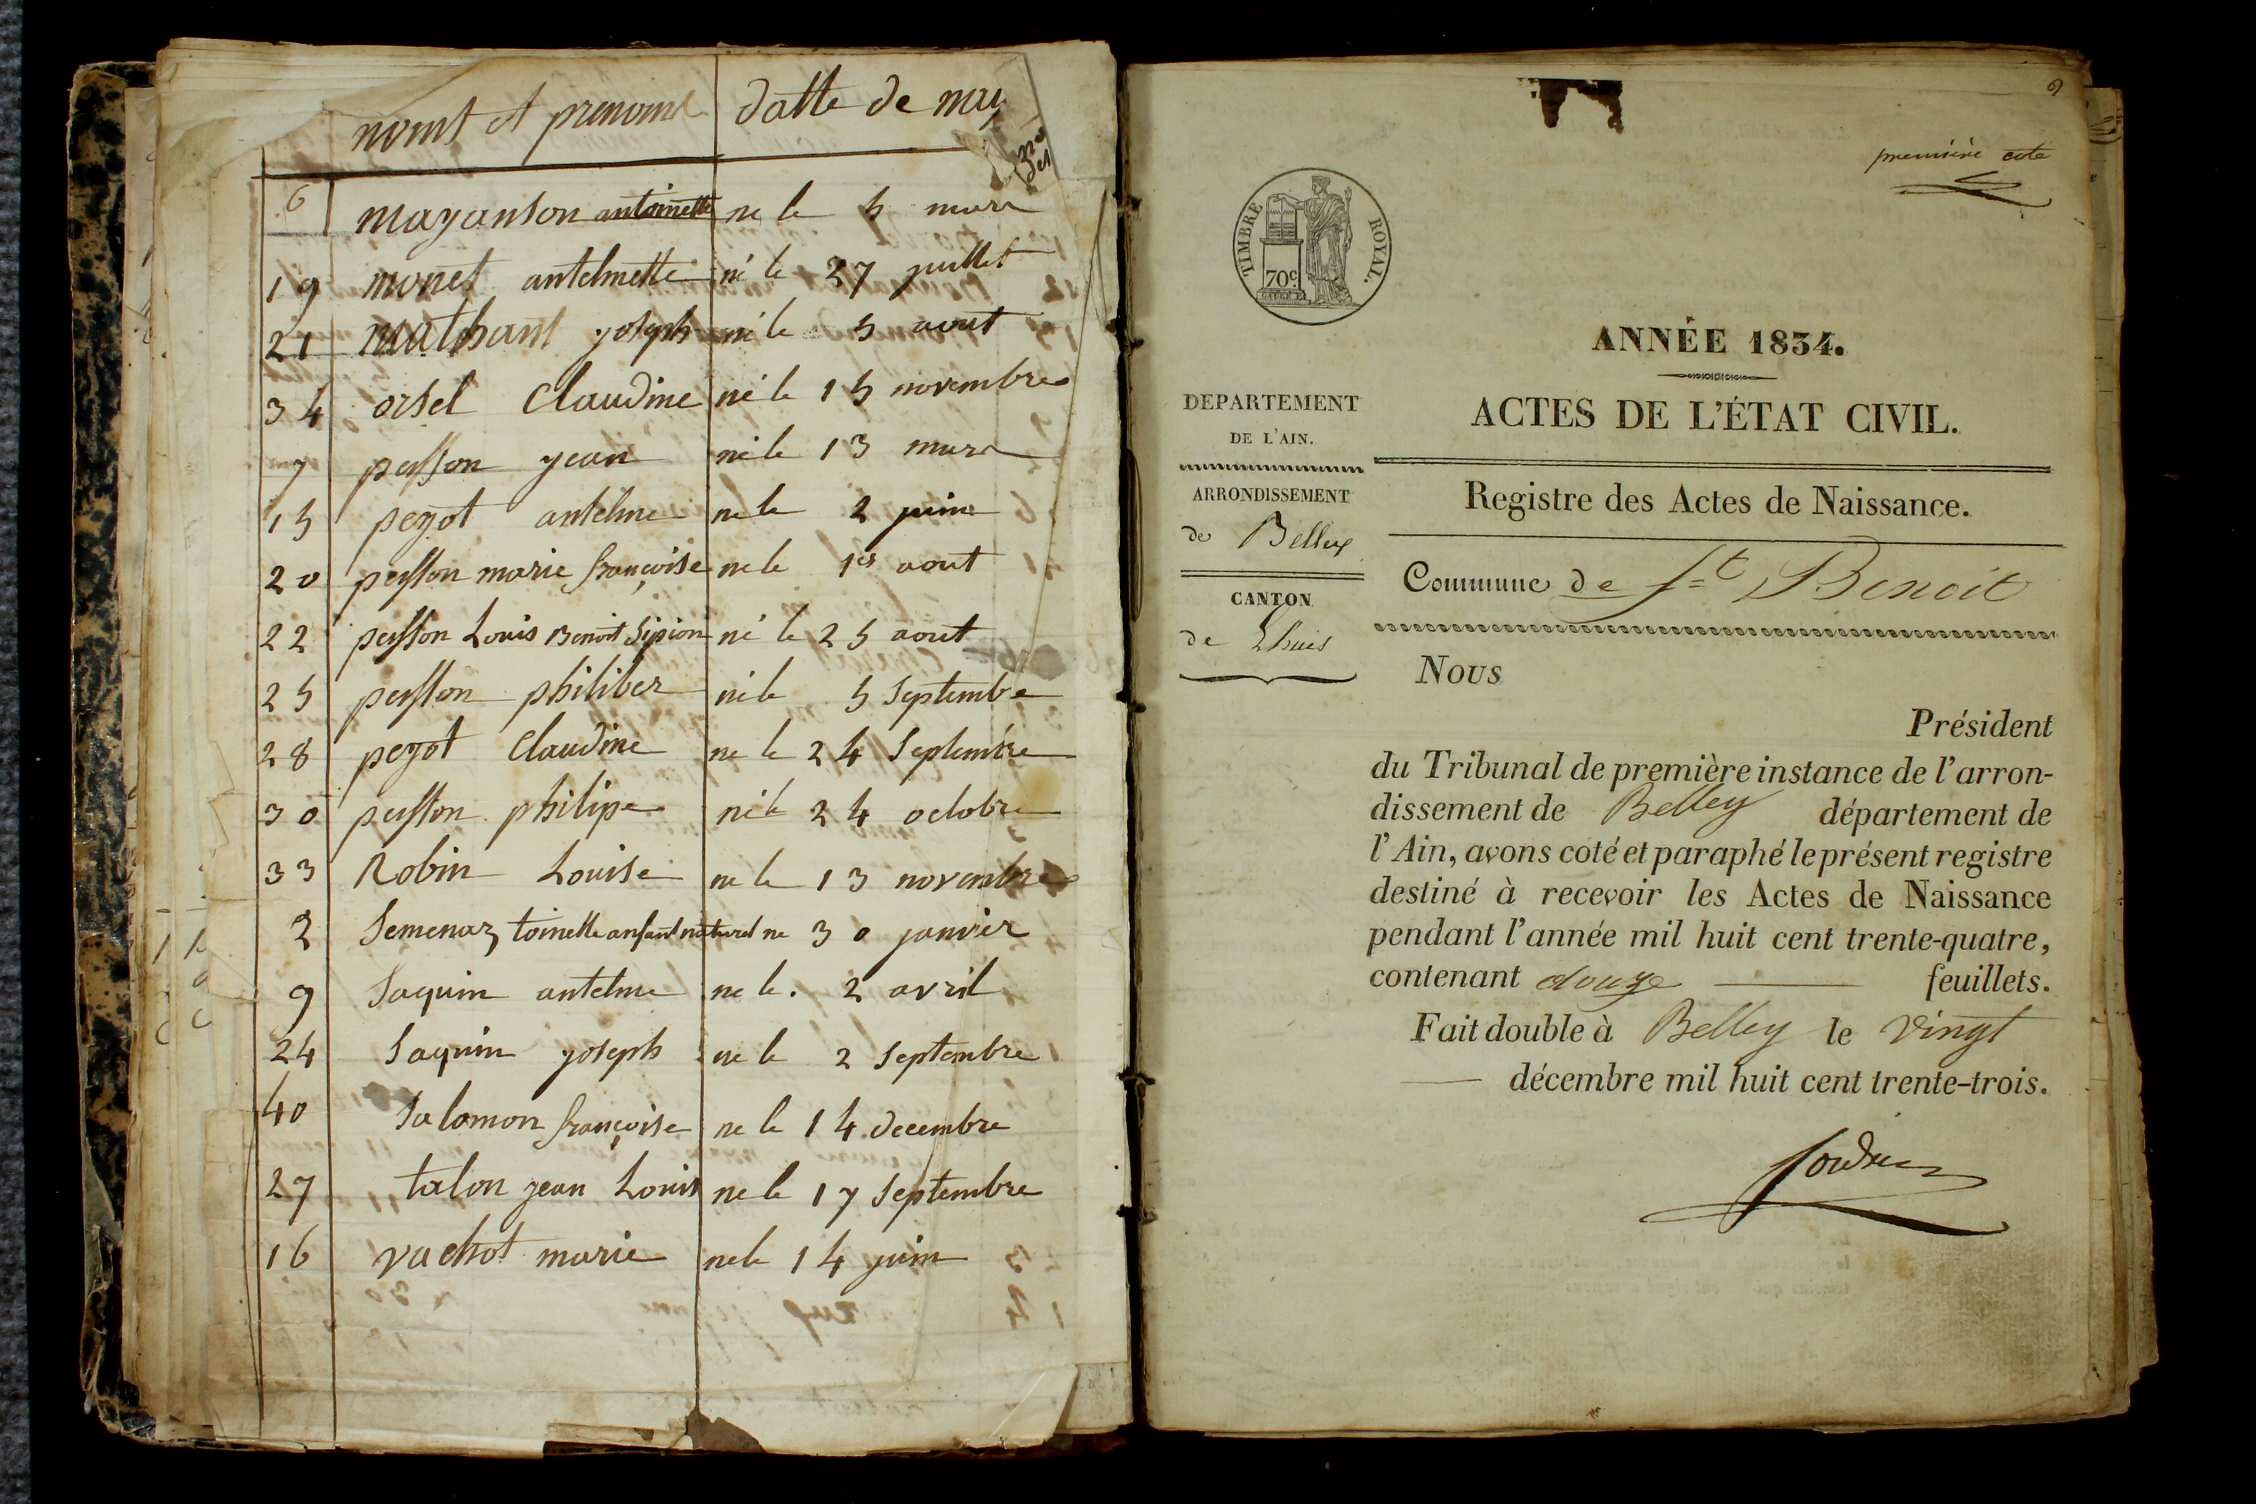 noms et prenoms datte de nay
6 mayanson antoinette ne le 5 mars
19 monet antelmette né le 27 juillet
21 mathant joseph né le 5 aout
34 orsel Claudine né le 15 novembre
7 pesson jean né le 13 mars
15 pezot antelme ne le 2 juin
20 pesson marie françoise ne le 1er aout
22 pesson Louis Benoit Sipion né le 25 aout
25 pesson philiber né le 5 Septembre
28 pezot Claudine ne le 24 Septembre
30 pesson philipe né le 24 octobre
33 Robin Louise ne le 13 novembre
2 Semenaz toinette anfant naturel ne 30 janvier
9 Saquin antelme ne le 2 avril
24 Saquin joseph ne le 2 Septembre
40 Salomon françoise ne le 14 decembre
27 talon jean Louis ne le 17 Septembre
16 vachot marie ne le 14 juin
première cote
TIMBRE ROYAL.
70c
ANNÉE 1834.
ACTES DE L'ÉTAT CIVIL.
DEPARTEMENT
DE L'AIN.
ARRONDISSEMENT
de Belley
CANTON
de Lhuis
Registre des Actes de Naissance.
Commune de St Benoit
Nous
Président
du Tribunal de première instance de l'arron-
dissement de Belley département de
l'Ain, avons coté et paraphé le présent registre
destiné à recevoir les Actes de Naissance
pendant l'année mil huit cent trente-quatre,
contenant douze feuillets.
Fait double à Belley le vingt
décembre mil huit cent trente-trois.